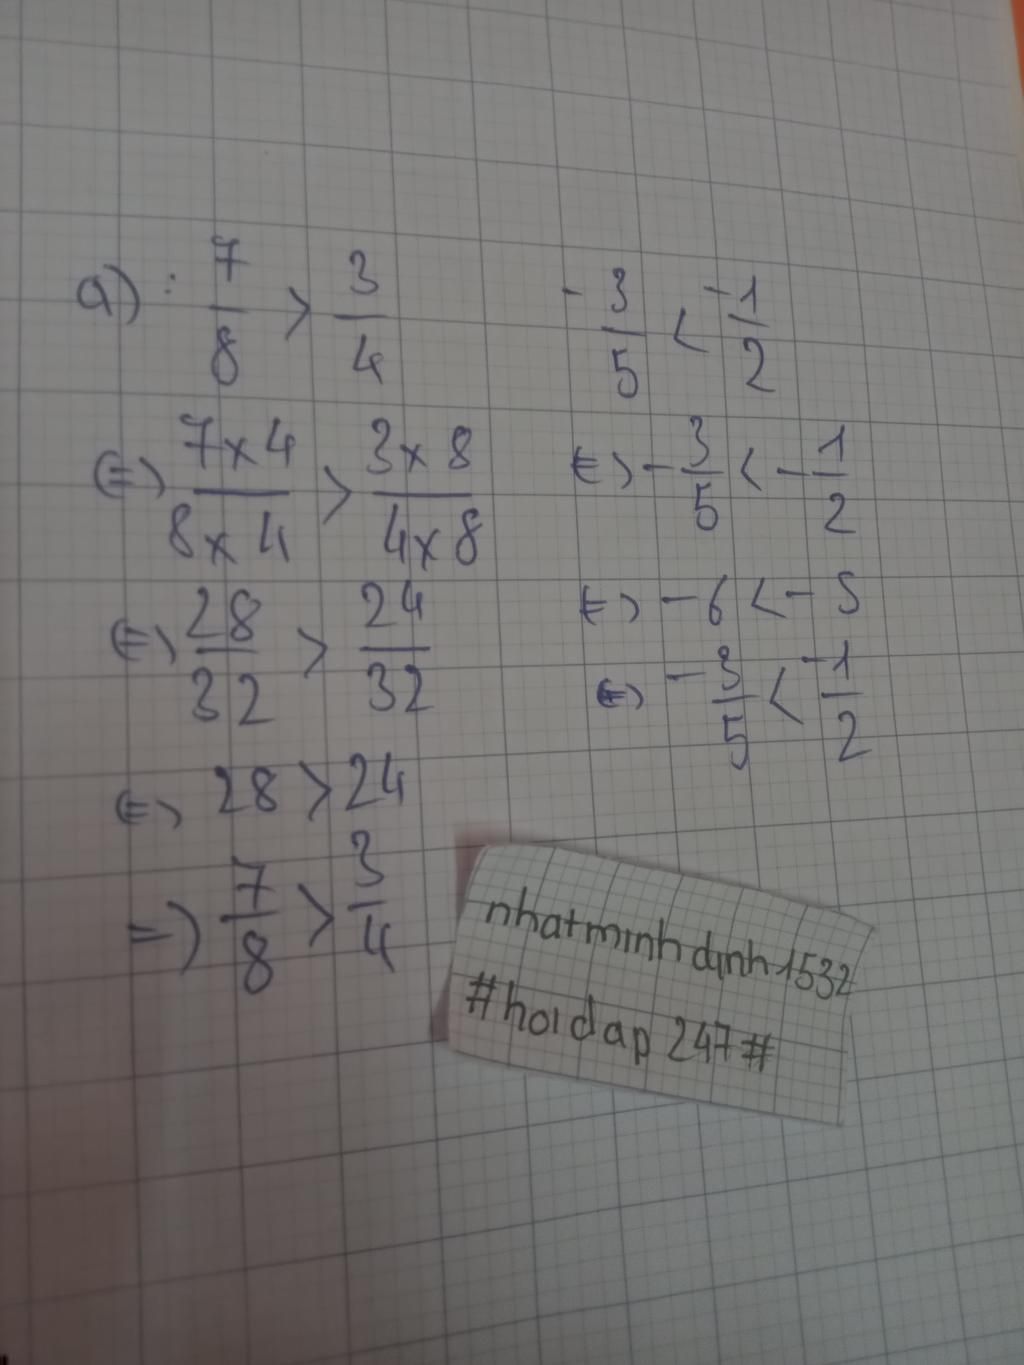 a) : 7/8 > 3/4
⇔ 7x4/8x4 > 3x8/4x8
⇔ 28/32 > 24/32
⇔ 28 > 24
=> 7/8 > 3/4
-3/5 < -1/2
⇔ -3/5 < -1/2
⇔ -6 < -5
⇔ -3/5 < -1/2
nhatminhdinh1532
#hoidap247#